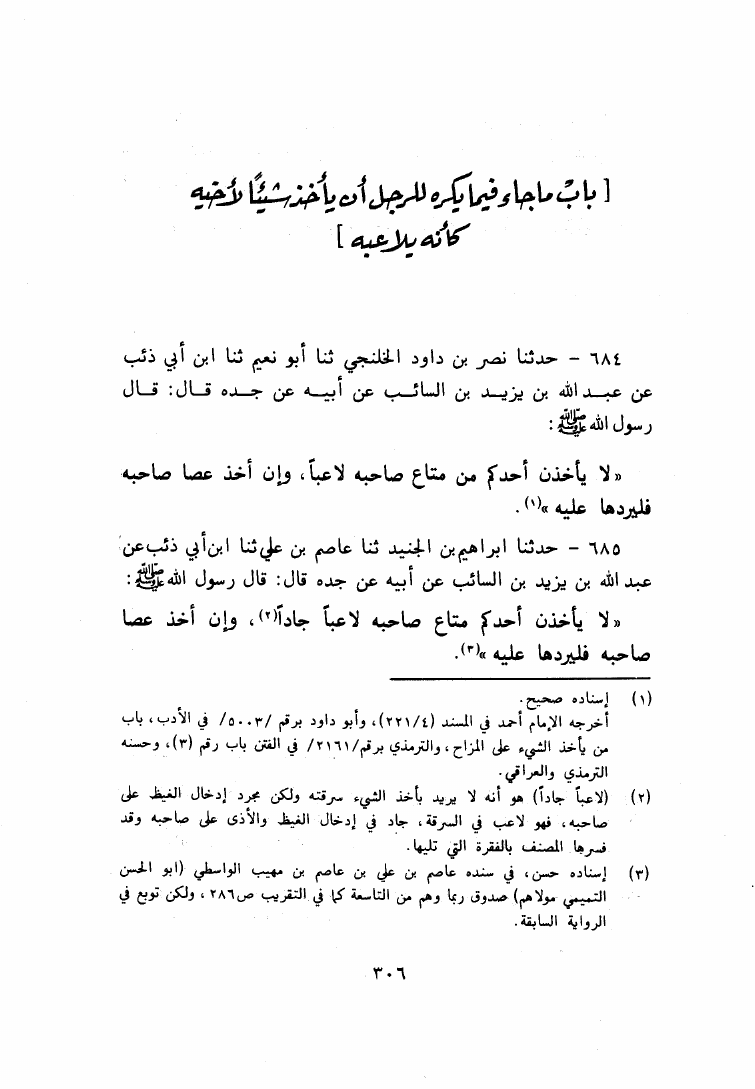 [ بابُ ماجاء فيما يكره للرجل أن يأخذ شيئًا لأخيه
كأنه يلاعبه ]
٦٨٤ - حدثنا نصر بن داود الخلنجي ثنا أبو نعيم ثنا ابن أبي ذئب
عن عبد الله بن يزيد بن السائب عن أبيه عن جده قال: قال
رسول الله ﷺ:
«لا يأخذن أحدكم من متاع صاحبه لاعباً، وإن أخذ عصا صاحبه
فليردها عليه»(١).
٦٨٥ - حدثنا ابراهيم بن الجنيد ثنا عاصم بن علي ثنا ابن أبي ذئب عن
عبد الله بن يزيد بن السائب عن أبيه عن جده قال: قال رسول الله ﷺ:
«لا يأخذن أحدكم متاع صاحبه لاعباً جاداً(٢)، وإن أخذ عصا
صاحبه فليردها عليه»(٣).
(١) إسناده صحيح.
أخرجه الإمام أحمد في المسند (٢٢١/٤)، وأبو داود برقم /٥٠٠٣/ في الأدب، باب
من يأخذ الشيء على المزاح، والترمذي برقم/٢١٦١/ في الفتن باب رقم (٣)، وحسنه
الترمذي والعراقي.
(٢) (لاعباً جاداً) هو أنه لا يريد بأخذ الشيء سرقته ولكن مجرد إدخال الغيظ على
صاحبه، فهو لاعب في السرقة، جاد في إدخال الغيظ والأذى على صاحبه وقد
فسرها المصنف بالفقرة التي تليها.
(٣) إسناده حسن، في سنده عاصم بن علي بن عاصم بن مهيب الواسطي (ابو الحسن
التميمي مولاهم) صدوق ربما وهم من التاسعة كما في التقريب ص٢٨٦، ولكن توبع في
الرواية السابقة.
٣٠٦